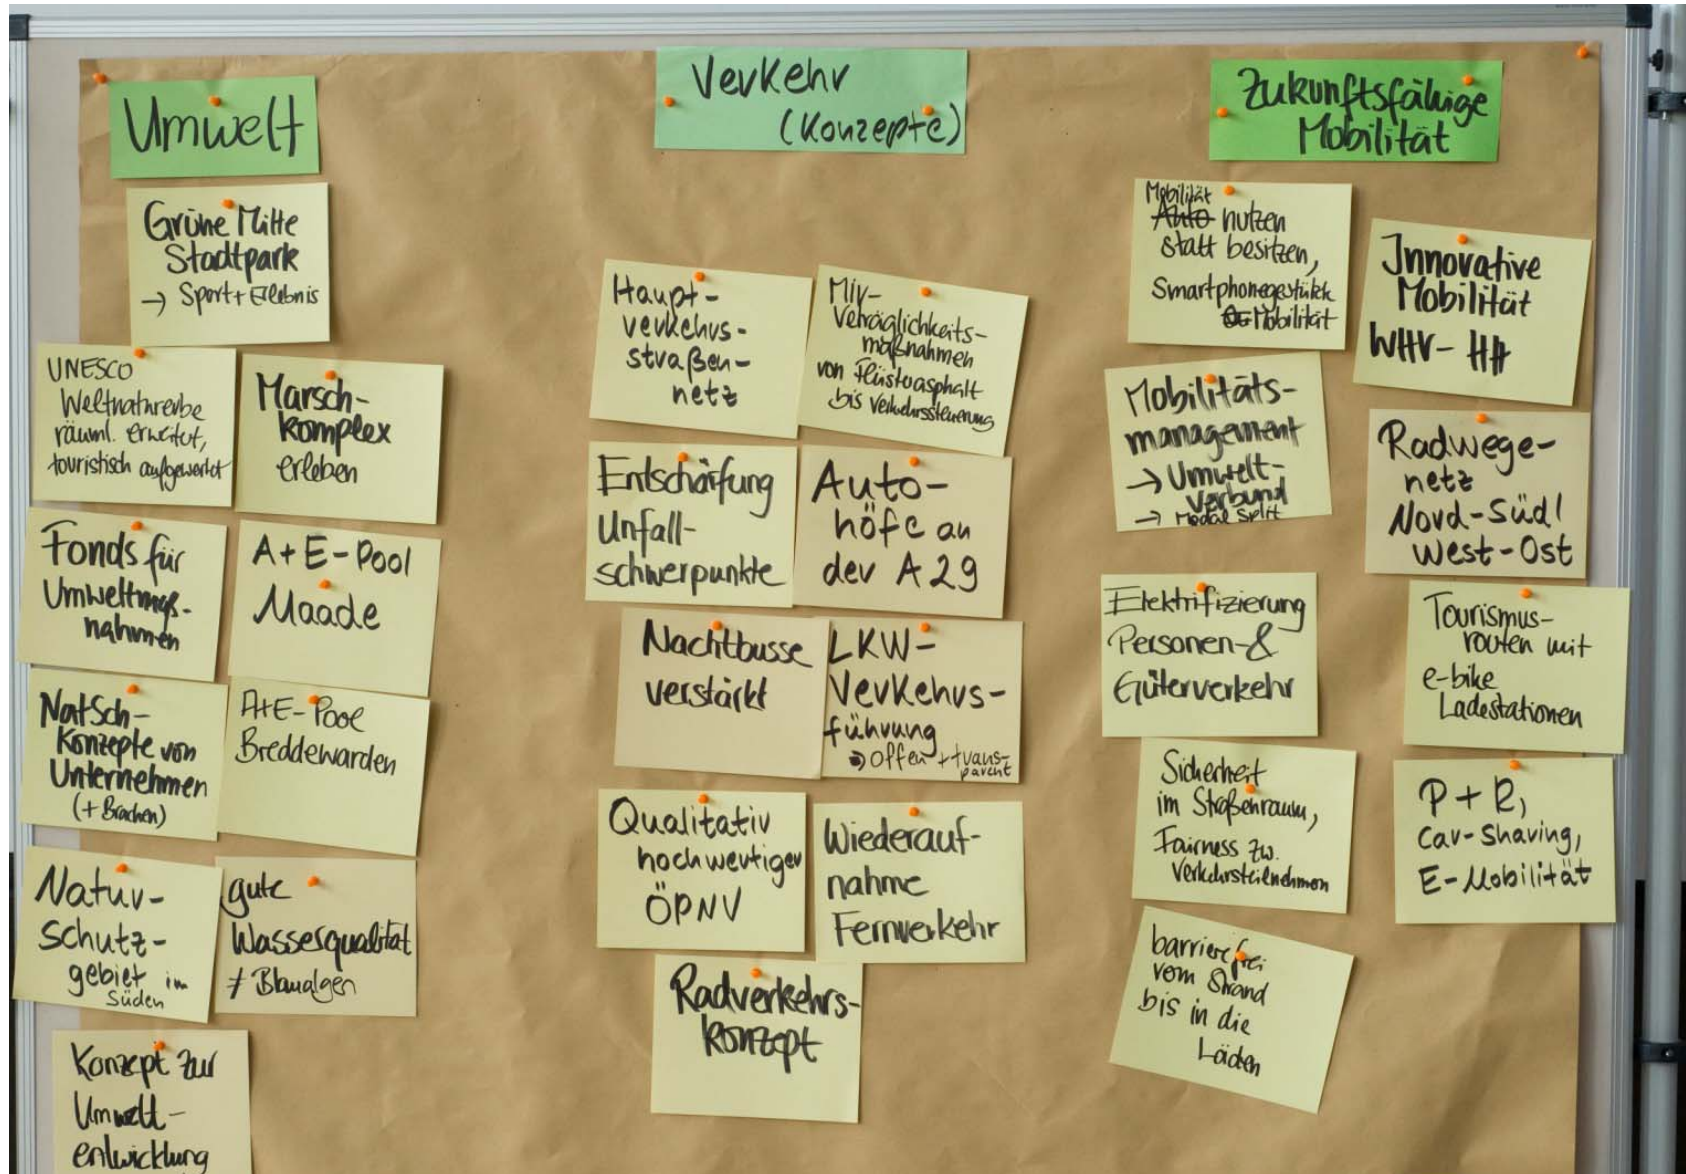 Umwelt
Grüne Mitte
Stadtpark
→ Sport + Erlebnis
UNESCO
Weltnaturerbe
räuml. erweitert,
touristisch aufgewertet
Marsch-
komplex
erleben
Fonds für
Umweltmaß-
nahmen
A+E-Pool
Maade
NatSch-
Konzepte von
Unternehmen
(+ Brachen)
A+E-Pool
Breddewarden
Natur-
schutz-
gebiet im
Süden
gute
Wasserqualität
≠ Blaualgen
Konzept zur
Umwelt-
entwicklung
Verkehr
(Konzepte)
Haupt-
verkehrs-
straßen-
netz
MIV-
Verträglichkeits-
maßnahmen
von Flüsterasphalt
bis Verkehrssteuerung
Entschärfung
Unfall-
schwerpunkte
Auto-
höfe an
der A29
Nachtbusse
verstärkt
LKW-
Verkehrs-
führung
→ offen + trans-
parent
Qualitativ
hochwertiger
ÖPNV
Wiederauf-
nahme
Fernverkehr
Radverkehrs-
konzept
Zukunftsfähige
Mobilität
Mobilität
Auto nutzen
statt besitzen,
Smartphonegestützte
Mobilität
Innovative
Mobilität
WHV - HH
Mobilitäts-
management
→ Umwelt-
verbund
→ Modal Split
Radwege-
netz
Nord-Süd/
West-Ost
Elektrifizierung
Personen-&
Güterverkehr
Tourismus-
routen mit
e-bike
Ladestationen
Sicherheit
im Straßenraum,
Fairness zw.
Verkehrsteilnehmern
P + R,
Car-Sharing,
E-Mobilität
barrierefrei
vom Strand
bis in die
Läden